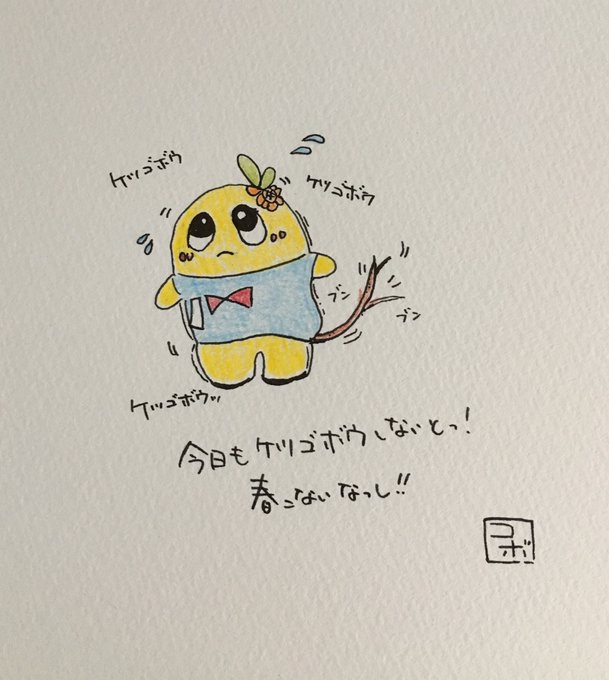 ケツゴボウ
ケツゴボウ
ブン
ブン
ケツゴボウッ
今日もケツゴボウしないとっ!
春こないなっし!!
コボ